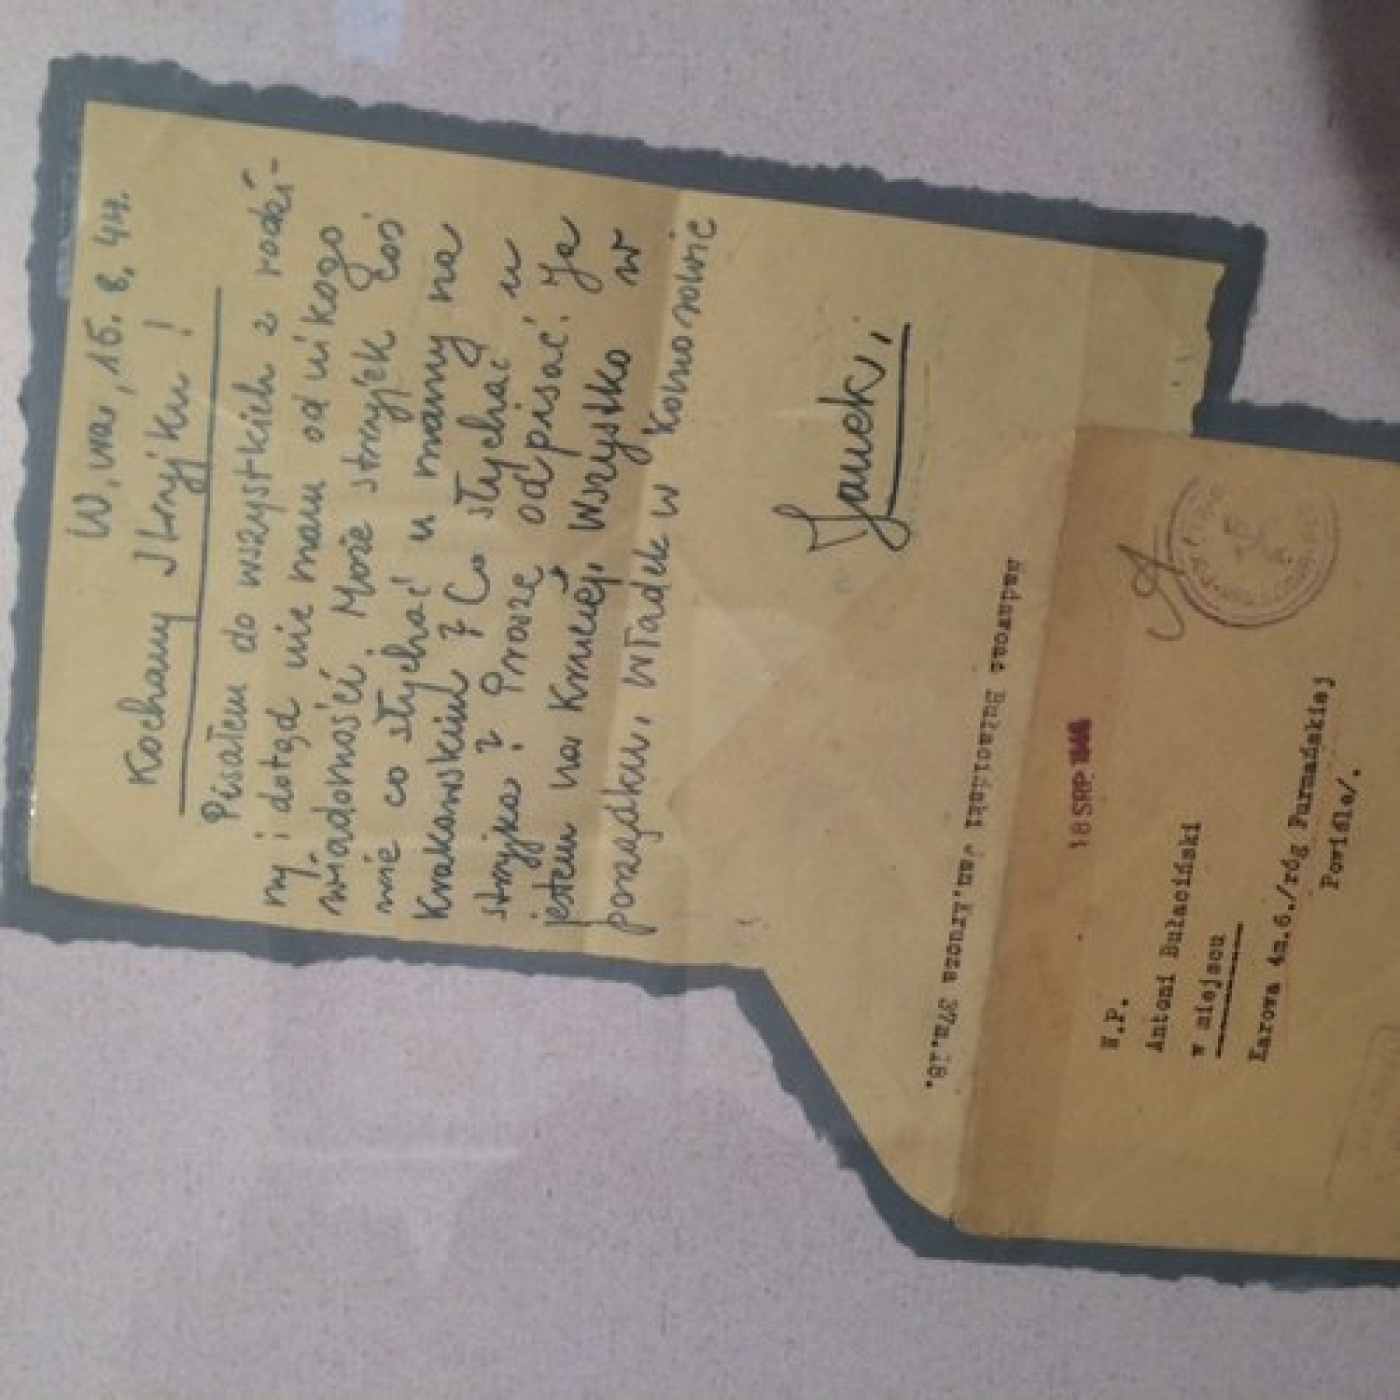 W.wa, 15. 8. 44.
Kochany Stryjku!
Pisałem do wszystkich z rodzi-
ny i dotąd nie mam od nikogo
wiadomości. Może stryjek coś
wie co słychać u mamy na
Krakowskim? Co słychać u
stryjka? Proszę odpisać. Ja
jestem na Kruczej, wszystko w
porządku, Władek w Komorowie
Janek.
nadawca: Bułaciński Jan. Krucza 37m.18.
18 SRP 1944
W.P.
Antoni Bułaciński
w miejscu
Karowa 4m.6./róg Furmańskiej
Powiśle/.